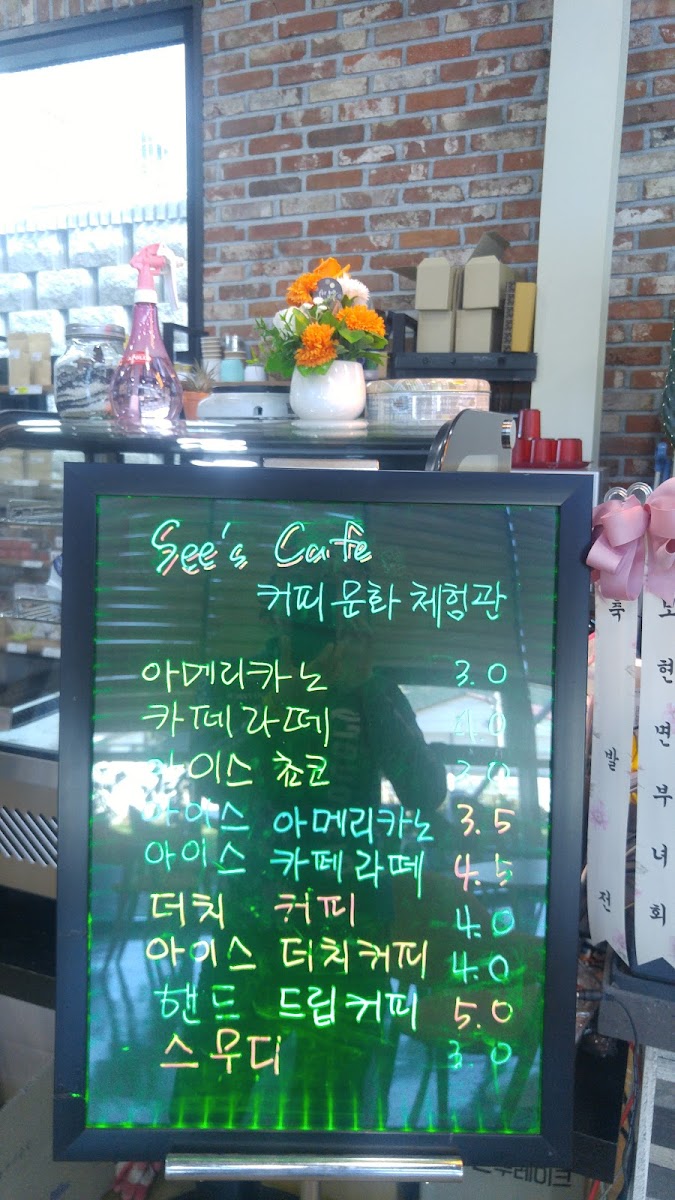 See's Cafe
커피문화체험관
아메리카노 3.0
카페라떼 4.0
아이스 쵸코 3.0
아이스 아메리카노 3.5
아이스 카페라떼 4.5
더치 커피 4.0
아이스 더치커피 4.0
핸드 드립커피 5.0
스무디 3.0
축 발전
보현면부녀회